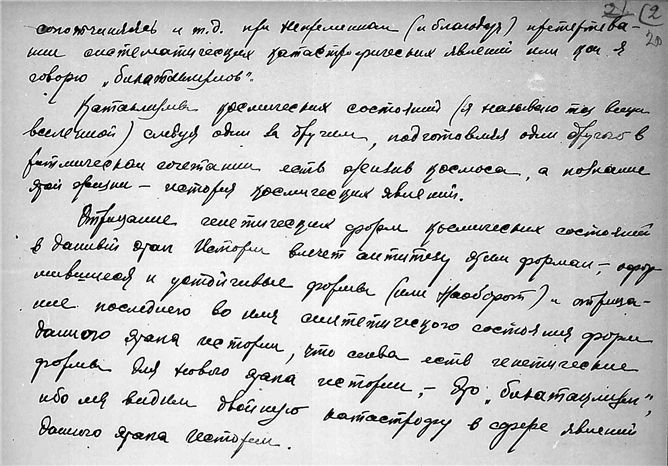 21 (2
20
сопочиняясь и т.д. при непременном (и благодаря) претерпева-
нии систематических катастрофических явлений или как я
говорю „бикатаклизмов".
Катаклизмы космических состояний (я называю так вещи
вселенной) следуя один за другим, подготовляя один другого в
ритмическом сочетании есть жизнь космоса, а познание
этой жизни – история космических явлений.
Отрицание генетических форм космических состояний
в данный этап Истории влечет антитезу этим формам, – офор
мившиеся и устойчивые формы (или наоборот) и отрица-
ние последнего во имя синтетического состояния форм
данного этапа истории, что снова есть генетические
формы для нового этапа истории, – это „бикатаклизм",
ибо мы видим двойную катастрофу в сфере явлений
данного этапа истории.